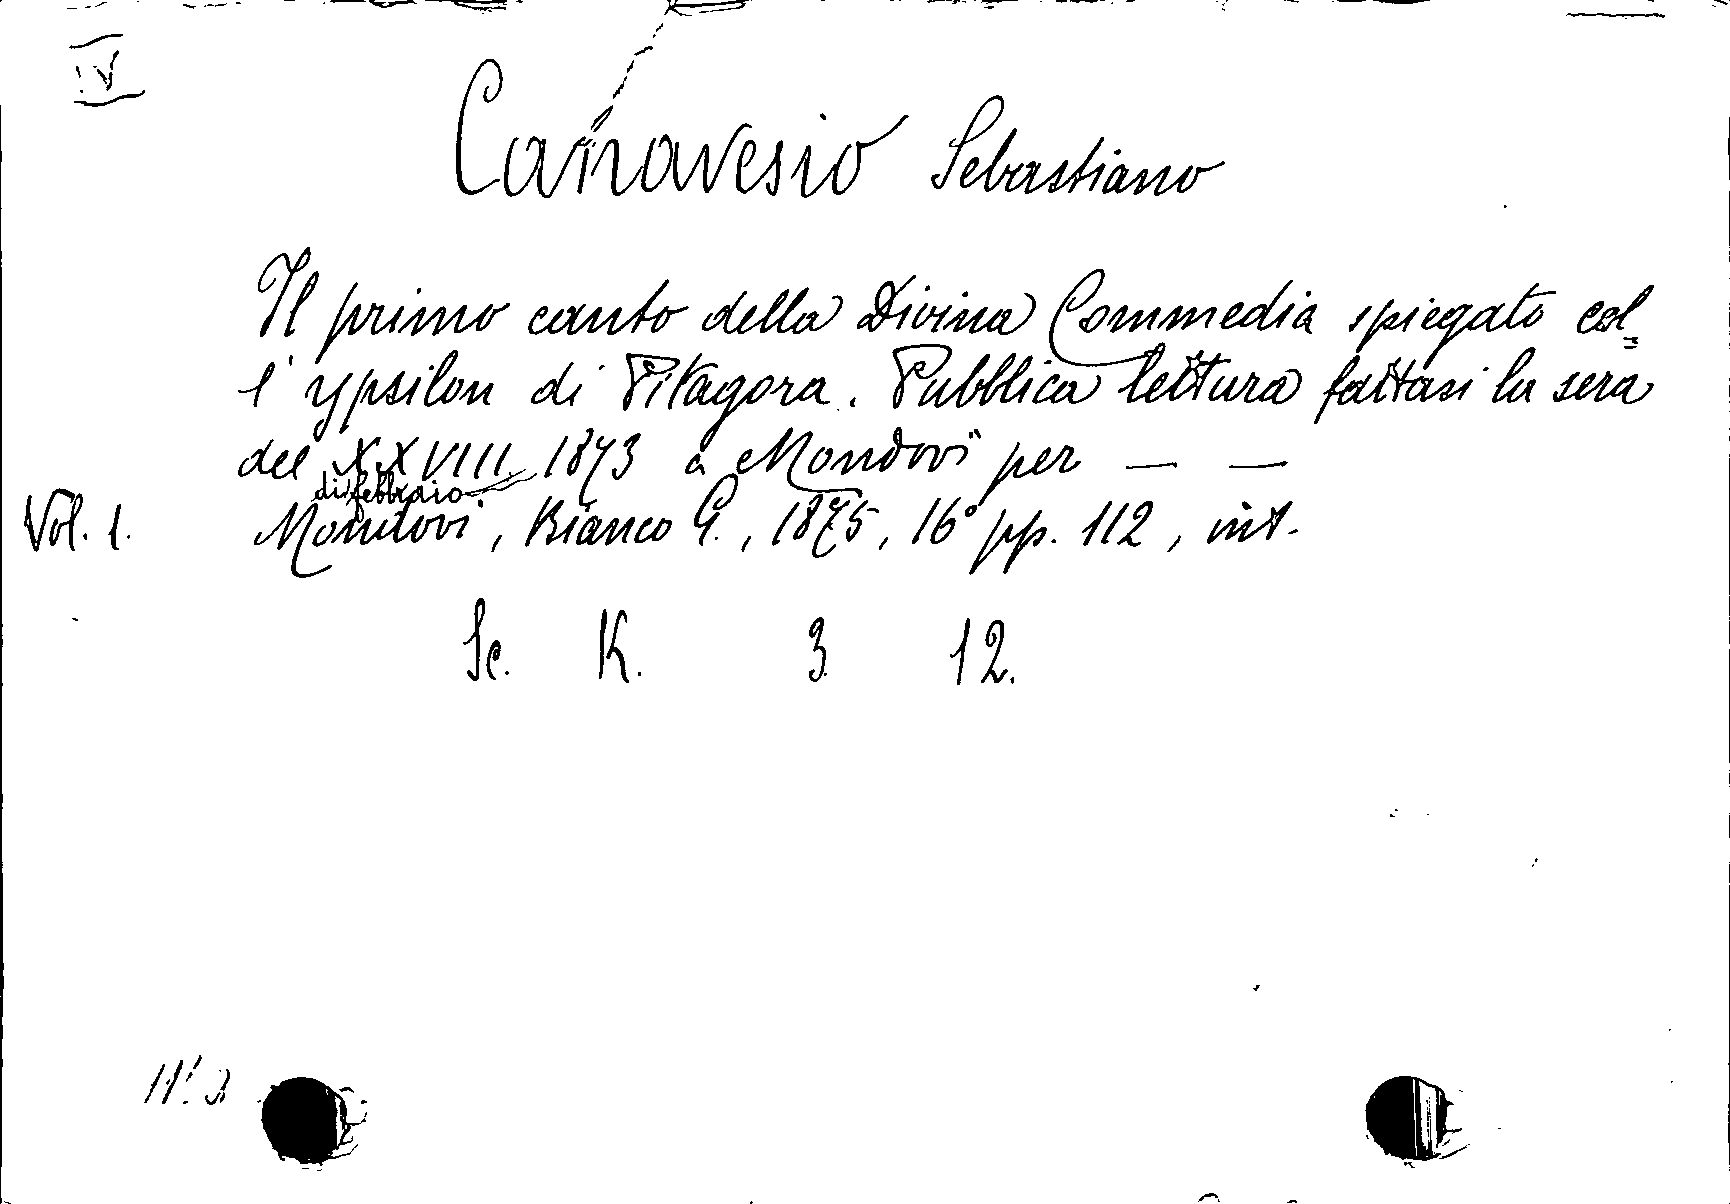 IV
Canavesio Sebastiano
Il primo canto della Divina Commedia spiegato col=
l'ypsilon di Pitagora. Pubblica lettura fattasi la sera
del XXVIII 1873 a Mondovì per — —
di febbraio
Vol. 1. Mondovì, Bianco G., 1875, 16° pp. 112, int.
Sc. K. 3 12.